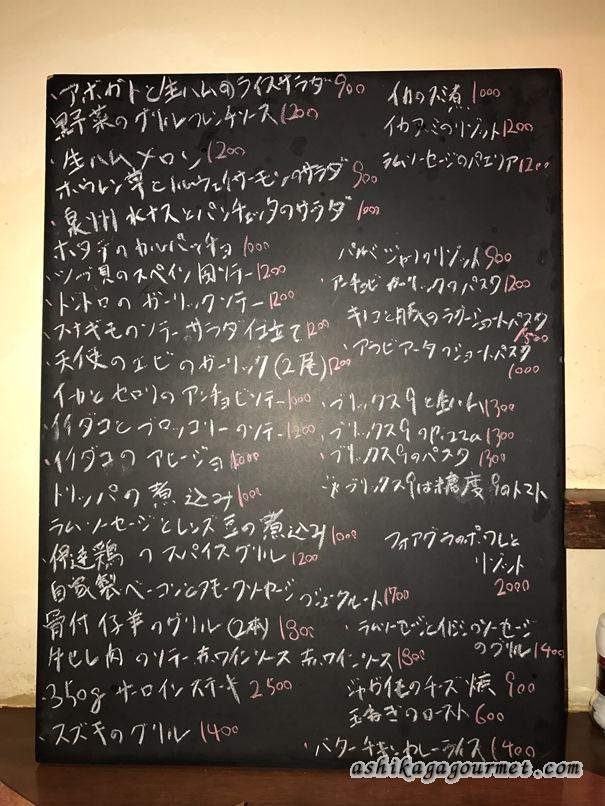 ・アボガドと生ハムのライスサラダ 900
野菜のグリルフレンチソース 1200
・生ハムメロン 1200
ホウレン草とノルウェイサーモンのサラダ 900
・泉州水ナスとパンチェッタのサラダ 1000
ホタテのカルパッチョ 1000
・ツブ貝のスペイン風ソテー 1200
・トントロのガーリックソテー 1200
・スナギモのソテーサラダ仕立て 1200
・天使のエビのガーリック(2尾) 1200
イカとセロリのアンチョビソテー 1000
イイダコとブロッコリーのソテー 1200
・イイダコのアヒージョ 1000
トリッパの煮込み 1000
ラムソーセージとレンズ豆の煮込み 1000
・伊達鶏のスパイスグリル 1200
自家製ベーコンとスモークソーセージのシュークルート 1700
骨付仔羊のグリル(2本) 1800
牛ヒレ肉のソテー赤ワインソース 赤ワインソース 1800
・350g サーロインステーキ 2500
・スズキのグリル 1400
イカのスミ煮 1000
イカスミのリゾット 1200
ラムソーセージのパエリア 1200
パルミジャーノのリゾット 900
・アンチョビガーリックのパスタ 1200
キノコと豚のラグーショートパスタ 1500
・アラビアータのショートパスタ 1000
・ブリックス9と生ハム 1300
・ブリックス9のPizza 1300
・ブリックス9のパスタ 1300
※ブリックス9は糖度9のトマト
フォアグラのポワレと
リゾット
2000
・ラムソーセージとイベリコソーセージ
のグリル 1400
ジャガ芋のチーズ焼 900
玉ねぎのロースト 600
・バターチキンカレーライス 1400
ashikagagourmet.com